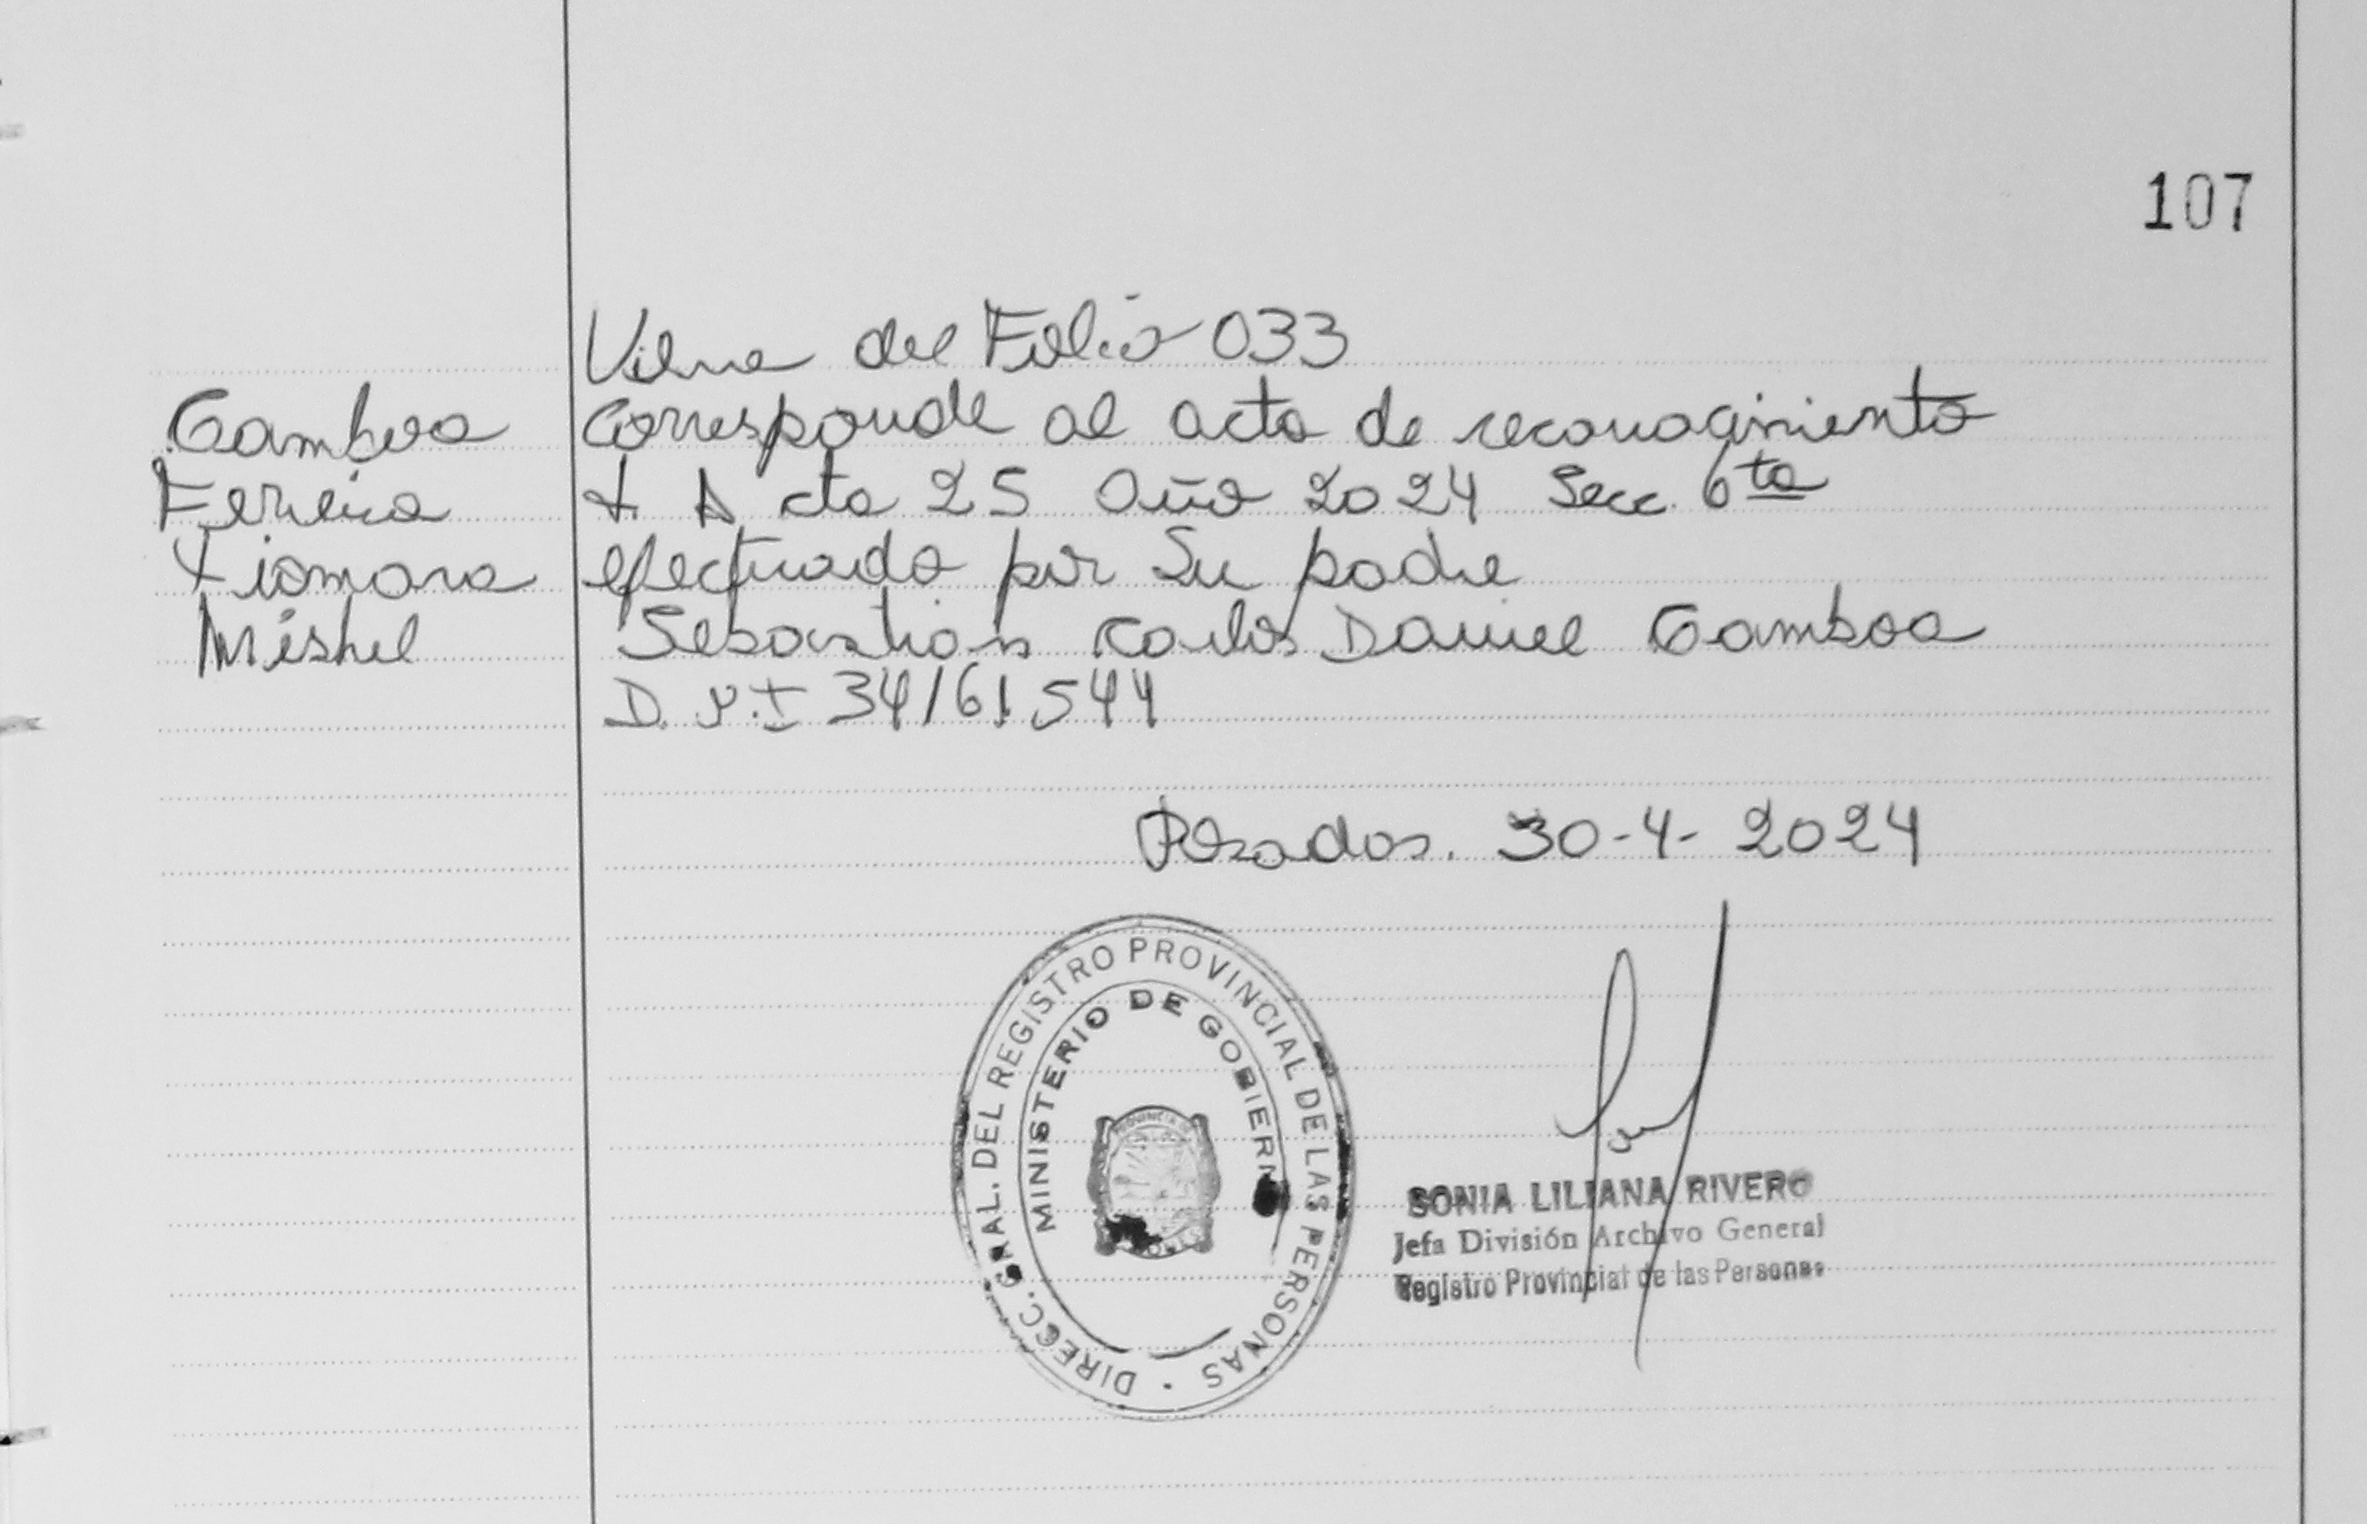 107
Viene del Folio 033
Gamboa
Ferreira
Xiomara
Mishel
Corresponde al acta de reconocimiento
T. Acta 25 Año 2024 Secc. 6ta
efectuado por Su padre
Sebastian Carlos Daniel Gamboa
D.N.I 34/61544
Posadas. 30-4-2024
DIRECC. GRAL. DEL REGISTRO PROVINCIAL DE LAS PERSONAS
MINISTERIO DE GOBIERNO
SONIA LILIANA RIVERO
Jefa División Archivo General
Registro Provincial de las Personas